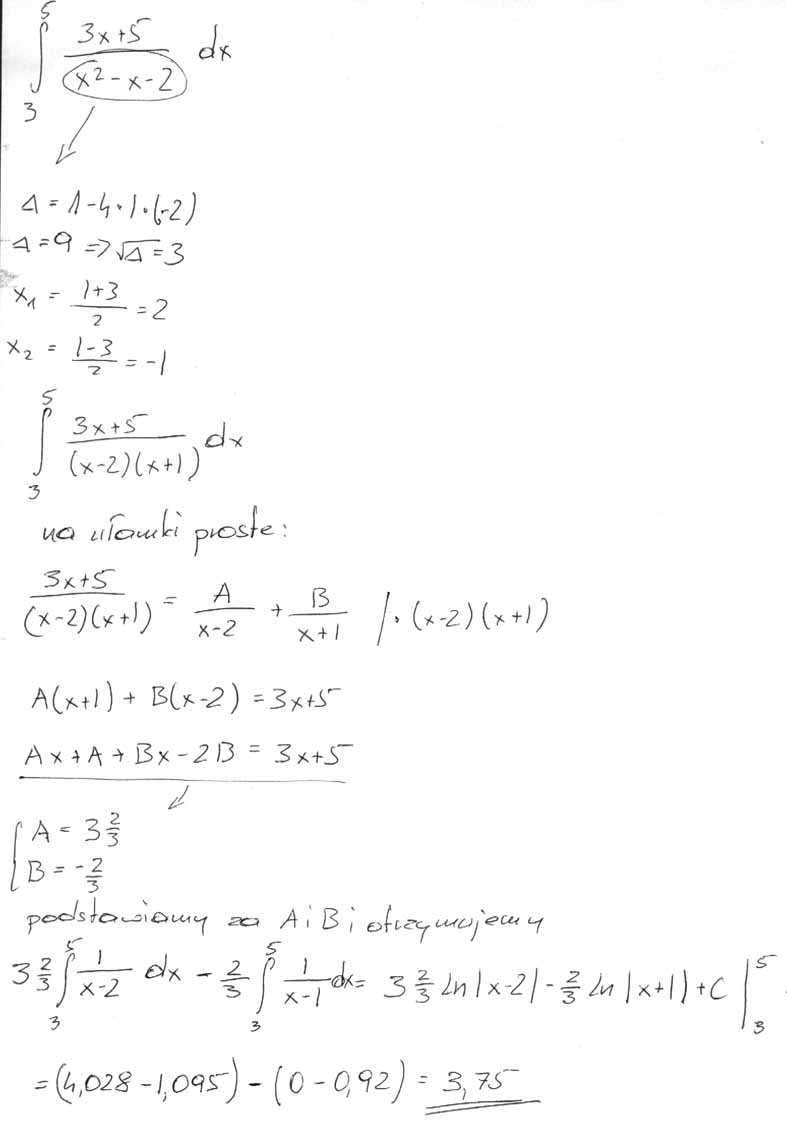 ∫₃⁵ (3x+5)/(x²-x-2) dx
Δ = 1-4·1·(-2)
Δ = 9 => √Δ = 3
x₁ = (1+3)/2 = 2
x₂ = (1-3)/2 = -1
∫₃⁵ (3x+5)/((x-2)(x+1)) dx
na ułamki proste:
(3x+5)/((x-2)(x+1)) = A/(x-2) + B/(x+1) /·(x-2)(x+1)
A(x+1) + B(x-2) = 3x+5
Ax+A+Bx-2B = 3x+5
{ A = 3 2/3
B = -2/3
podstawiamy za A i B i otrzymujemy
3 2/3 ∫₃⁵ 1/(x-2) dx - 2/3 ∫₃⁵ 1/(x-1) dx = 3 2/3 ln|x-2| - 2/3 ln|x+1| + C |₃⁵
= (4,028-1,095) - (0-0,92) = 3,75